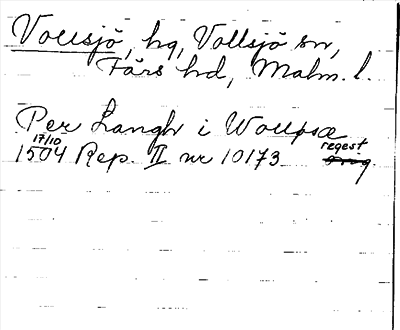 Vollsjö, hg, Vollsjö sn,
Färs hd, Malm. l.
Per Langh i Wollpsæ
17/10 regest
1504 Rep. II nr 10173 orig